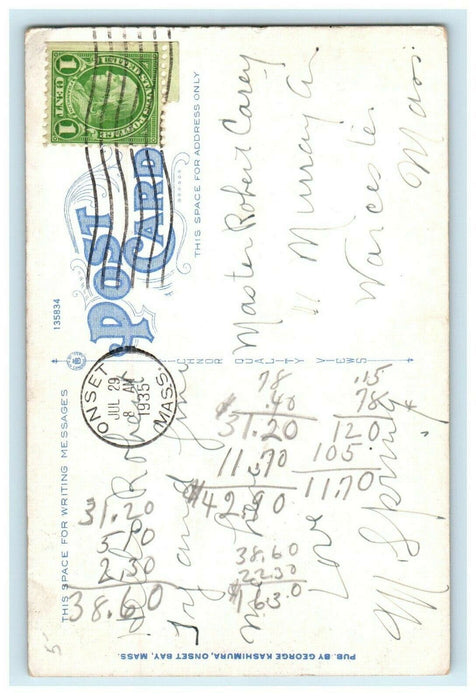 THIS SPACE FOR WRITING MESSAGES
135834
THIS SPACE FOR ADDRESS ONLY
POST CARD
TICHNOR QUALITY VIEWS
PUB. BY GEORGE KASHIMURA, ONSET BAY, MASS.
UNITED STATES POSTAGE
1 CENT 1
ONSET
JUL 29
8 AM
1935
MASS.
Hello Robert
Try and
Love
M Spring
Master Robert Carey
11 Murray Av
Worcester
Mass
78
.40
31.20
11.70
$42.90
.15
78
120
105
11.70
31.20
38.60
38.60
22.30
5